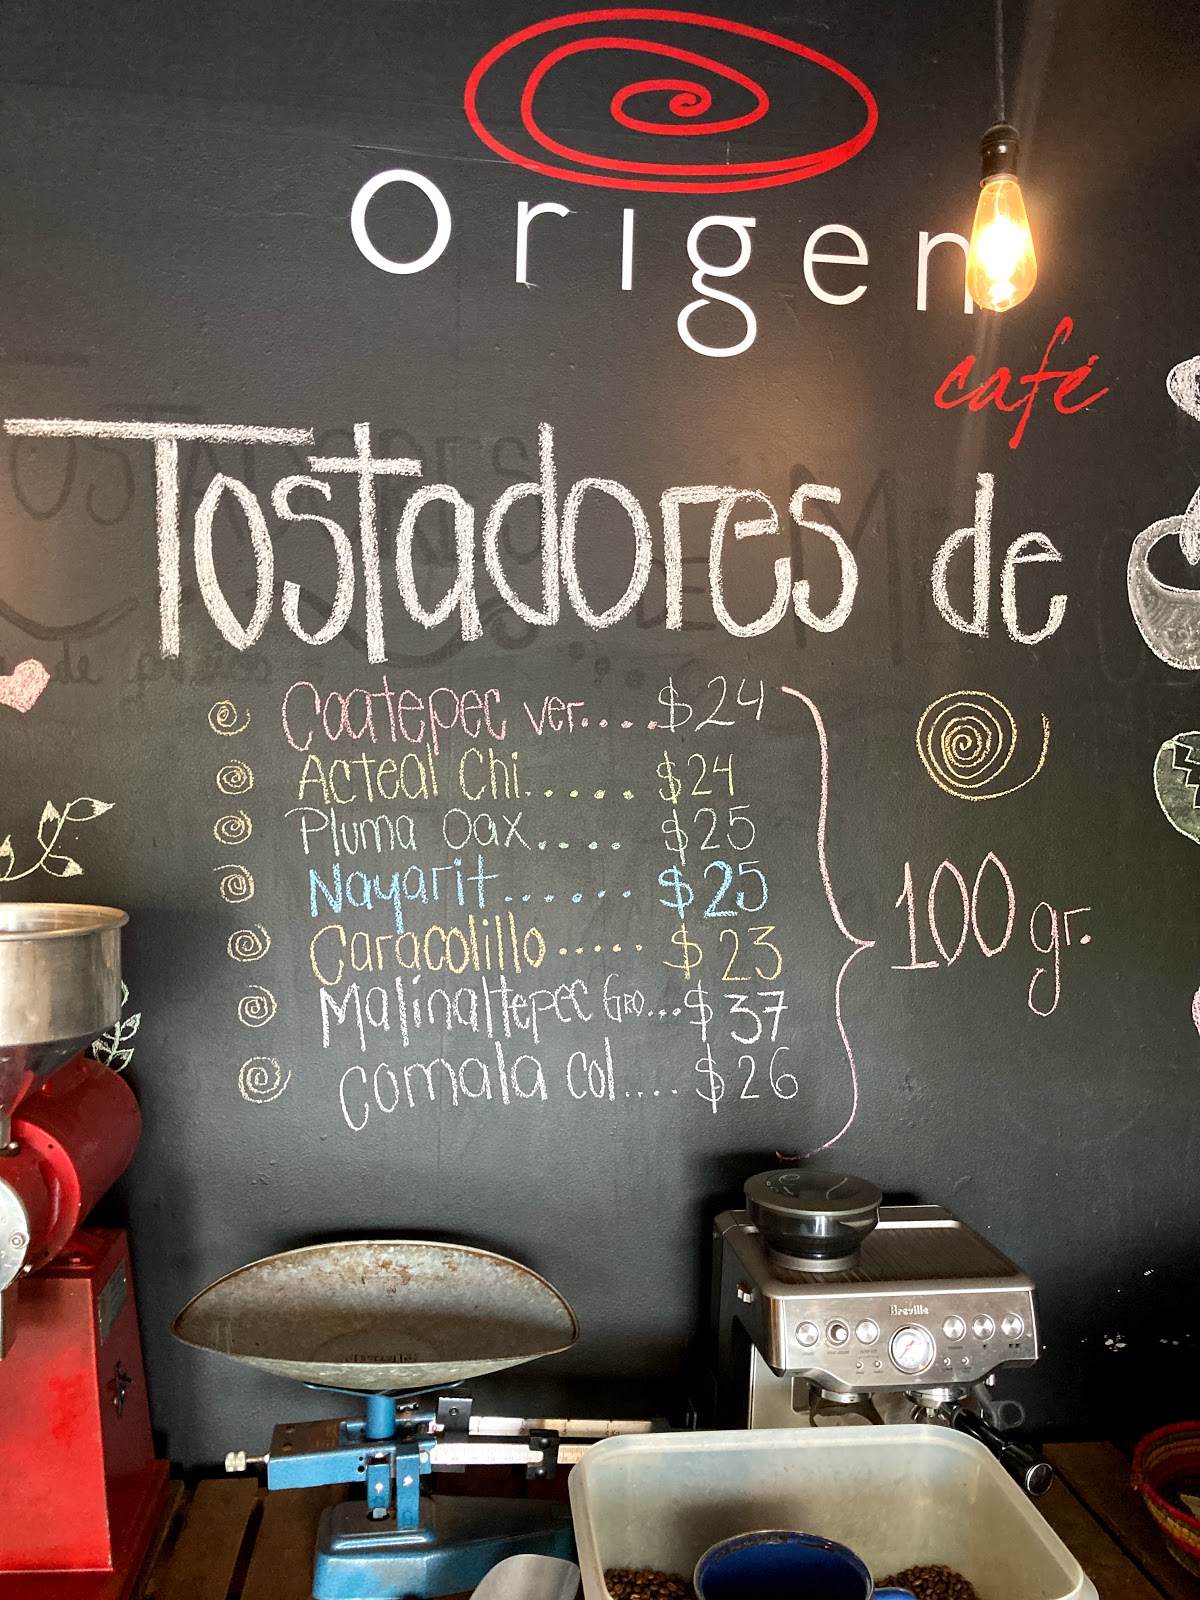 origen
café
Tostadores de
Coatepec Ver....$24
Acteal Chi......$24
Pluma Oax....$25
Nayarit......$25
Caracolillo.....$23
Malinaltepec Gro...$37
Comala Col....$26
100 gr.
Breville